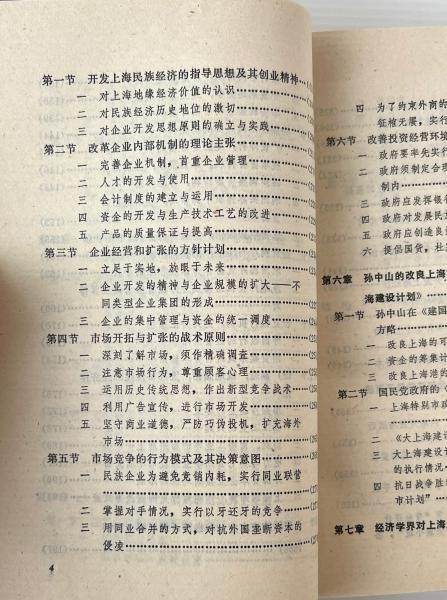 第一节 开发上海民族经济的指导思想及其创业精神
一 对上海地缘经济价值的认识
二 对民族经济历史地位的激切
三 对企业开发思想原则的确立与实践
第二节 改革企业内部机制的理论主张
一 完善企业机制，首重企业管理
二 人才的开发与使用
三 会计制度的建立与运用
四 资金的开发与生产技术工艺的改进
五 产品的质量保证与提高
第三节 企业经营和扩张的方针计划
一 立足于实地，放眼于未来
二 企业开发的精神与企业规模的扩大——不
同类型企业集团的形成
三 企业的集中管理与资金的统一调度
第四节 市场开拓与扩张的战术原则
一 深刻了解市场，须作精确调查
二 注意市场行为，尊重顾客心理
三 运用历史传统思想，作出新型竞争战术
四 利用广告宣传，进行市场开发
五 坚守商业道德，严防巧伪投机，扩充海外
市场
第五节 市场竞争的行为模式及其决策意图
一 民族企业为避免竞销内耗，实行同业联营
二 掌握对手情况，实行以牙还牙的竞争
三 用同业合并的方式，对抗外国垄断资本的
侵凌
4
四 为了约束外商的
征榷无展，实行
第六节 改善投资经营环境
一 政府要率先实行
二 政府须制定合理
制内
三 政府应发挥银行
四 政府对发展民
五 政府应创造良
六 提倡国货，杜
第六章 孙中山的改良上海
海建设计划》
第一节 孙中山在《建国
方略
一 改良上海的可
二 资金的筹集计
三 改良上海港的
第二节 国民党政府的《
一 上海特别市政
二 《大上海建设
三 大上海建设
的执行情况
四 抗日战争胜
市计划”
第七章 经济学界对上海